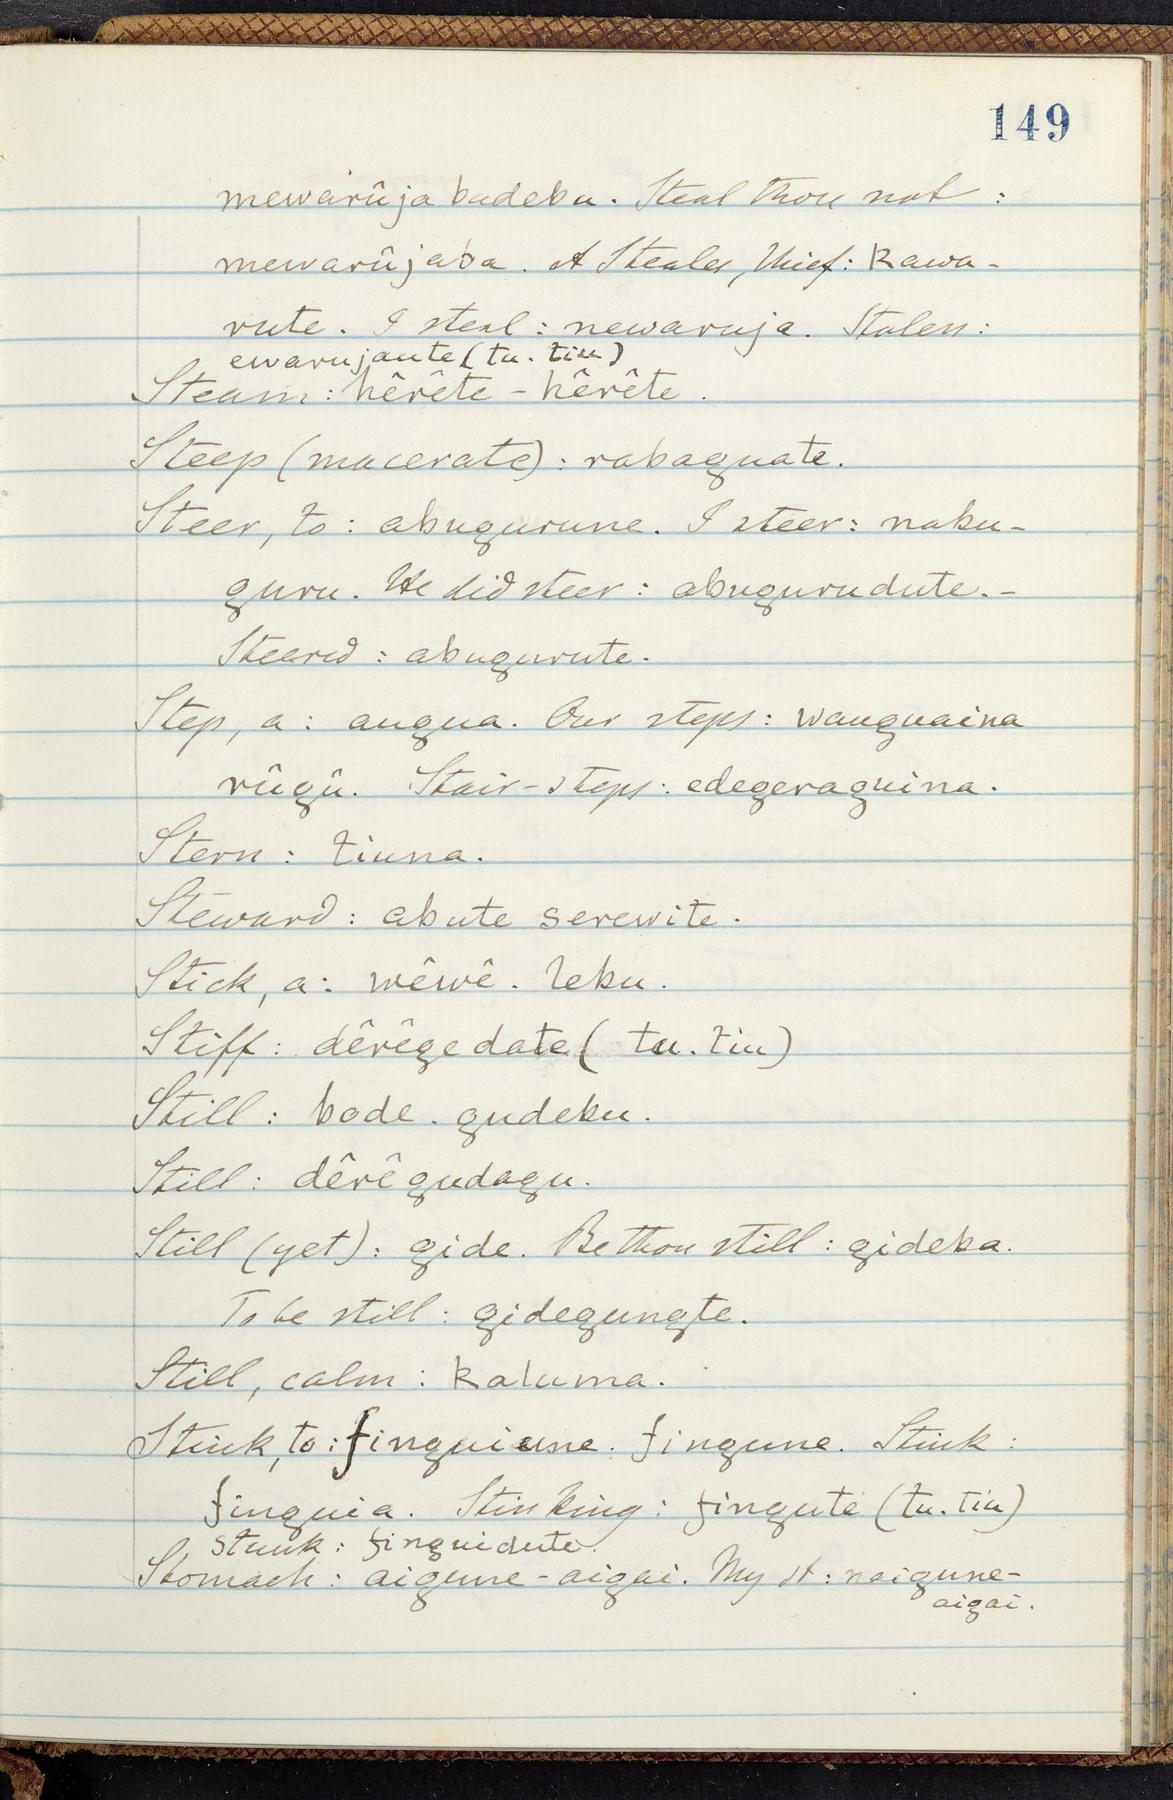 149
mewarûja badebu. Steal thou not :
mewarûjaba. A Stealer, thief: Kawa-
rute. I steal : newaruja. Stolen :
ewarujaute (tu. tiu)
Steam : hêrête - hêrête.
Steep (macerate) : rabaguate.
Steer, to : abugurune. I steer : nabu-
guru. He did steer : abugurudute. -
Steered : abugurute.
Step, a : augua. Our steps : wauguaina
rûgû. Stair-steps : edegeraguina.
Stern : tiuna.
Steward : abute serewite.
Stick, a : wêwê. leku.
Stiff : dêrêgedate (tu. tiu)
Still : bode. gudebu.
Still : dêrêgudagu.
Still (yet) : gide. Be thou still : gideba.
To be still : gidegungte.
Still, calm : kaluma.
Stink, to : finguiune. fingune. Stink :
finguia. Stinking : fingute (tu. tiu)
stunk : finguidute.
Stomach : aigune - aigai. My st : naigune-
aigai.